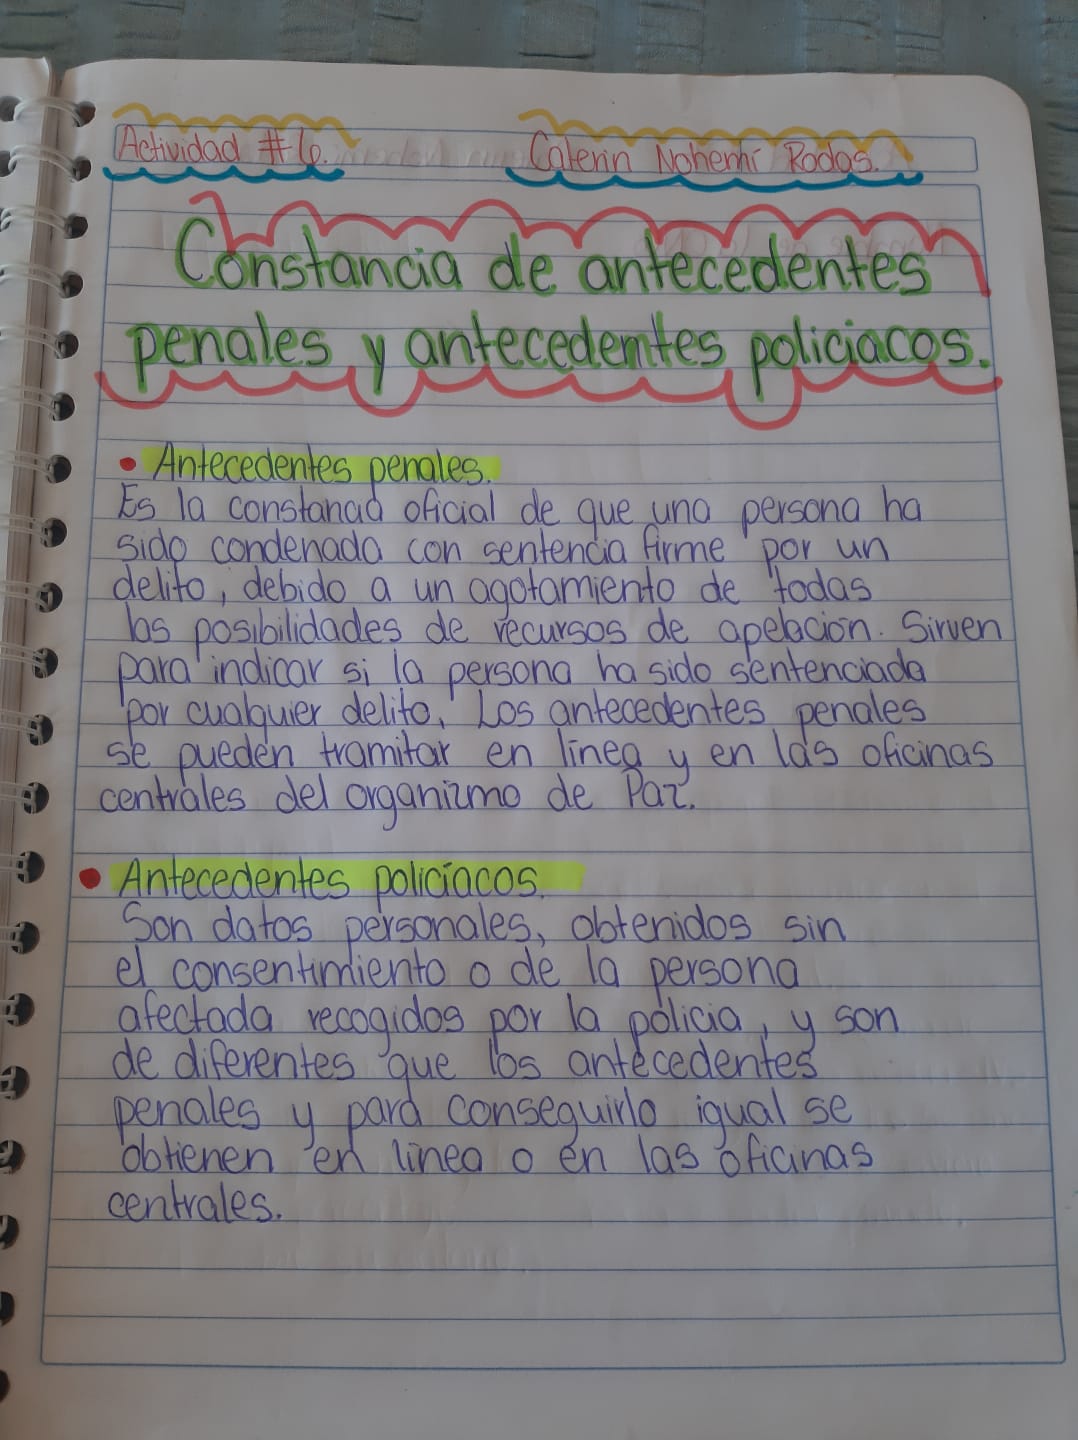 Actividad #6.
Caterin Nohemí Rodas.
Constancia de antecedentes
penales y antecedentes policiacos.
• Antecedentes penales.
Es la constancia oficial de que una persona ha
sido condenada con sentencia firme por un
delito, debido a un agotamiento de todas
las posibilidades de recursos de apelación. Sirven
para indicar si la persona ha sido sentenciada
por cualquier delito. Los antecedentes penales
se pueden tramitar en línea y en las oficinas
centrales del organizmo de Paz.
• Antecedentes policíacos.
Son datos personales, obtenidos sin
el consentimiento o de la persona
afectada recogidos por la policia, y son
de diferentes que los antecedentes
penales y para conseguirlo igual se
obtienen en linea o en las oficinas
centrales.